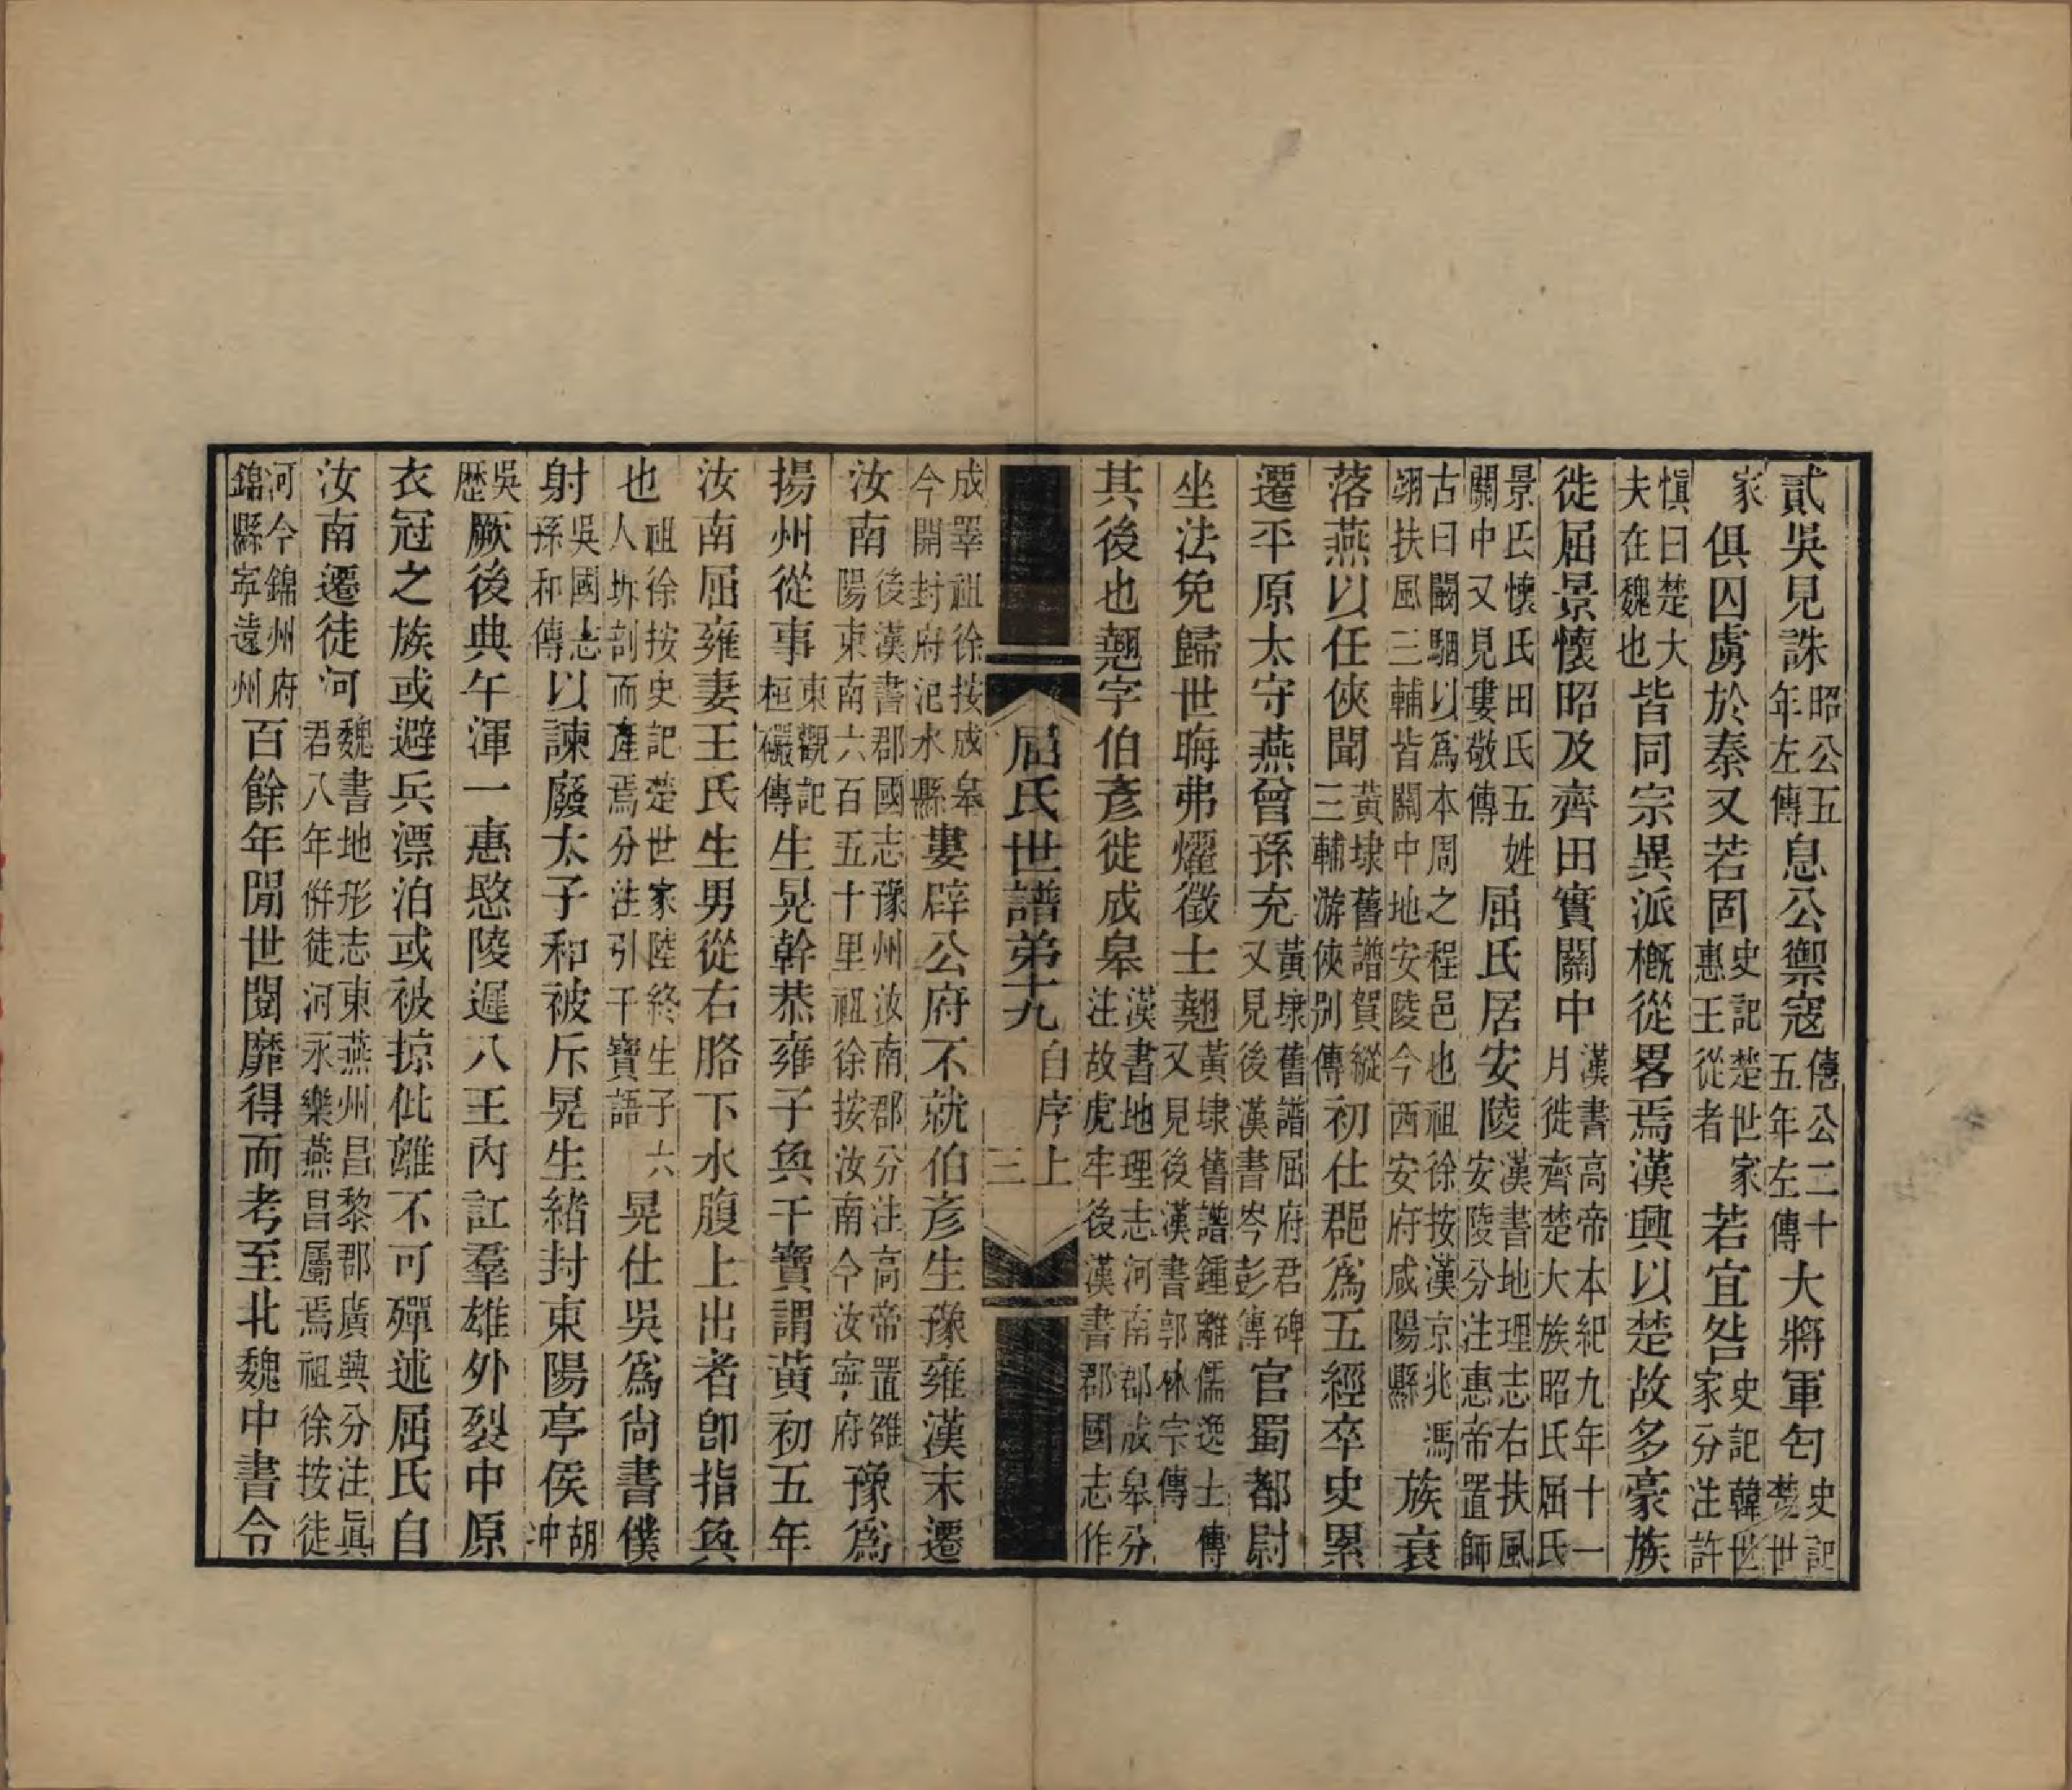 貳吳見誅昭公五年左傳息公禦寇僖公二十五年左傳大將軍匄史記楚世
家俱囚虜於秦又若固史記楚世家惠王從者若宜咎史記韓世家分注許
慎曰楚大夫在魏也皆同宗異派槪從畧焉漢興以楚故多豪族
徙屈景懷昭及齊田實關中漢書高帝本紀九年十一月徙齊楚大族昭氏屈氏
景氏懷氏田氏五姓關中又見婁敬傳屈氏居安陵漢書地理志右扶風安陵分注惠帝置師
古曰闞駰以爲本周之程邑也祖徐按漢京兆馮翊扶風三輔皆關中地安陵今西安府咸陽縣族衰
落燕以任俠聞黃埭舊譜賀縱三輔游俠別傳初仕郡爲五經卒史累
遷平原太守燕曾孫充黃埭舊譜屈府君碑又見後漢書岑彭傳官蜀都尉
坐法免歸世晦弗燿徵士翹黃埭舊譜鍾離儒逸士傳又見後漢書郭林宗傳
其後也翹字伯彥徙成皋漢書地理志河南郡成皋分注故虎牢後漢書郡國志作
屈氏世譜弟十九 自序上 三
成睪祖徐按成皋今開封府汜水縣婁辟公府不就伯彥生豫雍漢末遷
汝南後漢書郡國志豫州汝南郡分注高帝置雒陽東南六百五十里祖徐按汝南今汝寧府豫爲
揚州從事東觀記桓礹傳生晃幹恭雍子奐干寶謂黃初五年
汝南屈雍妻王氏生男從右胳下水腹上出者卽指奐
也祖徐按史記楚世家陸終生子六人坼剖而產焉分注引干寶語晃仕吳爲尚書僕
射吳國志孫和傳以諫廢太子和被斥晃生緒封東陽亭侯胡冲
吳歴厥後典午渾一惠愍陵遲八王內訌羣雄外裂中原
衣冠之族或避兵漂泊或被掠仳離不可殫述屈氏自
汝南遷徒河魏書地形志東燕州昌黎郡廣興分注眞君八年併徒河永樂燕昌屬焉祖徐按徒
河今錦州府錦縣寧遠州百餘年閒世閥靡得而考至北魏中書令